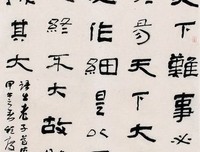 天下難事必
易天下大
作細是以
終不大故
其大
老子
甲午